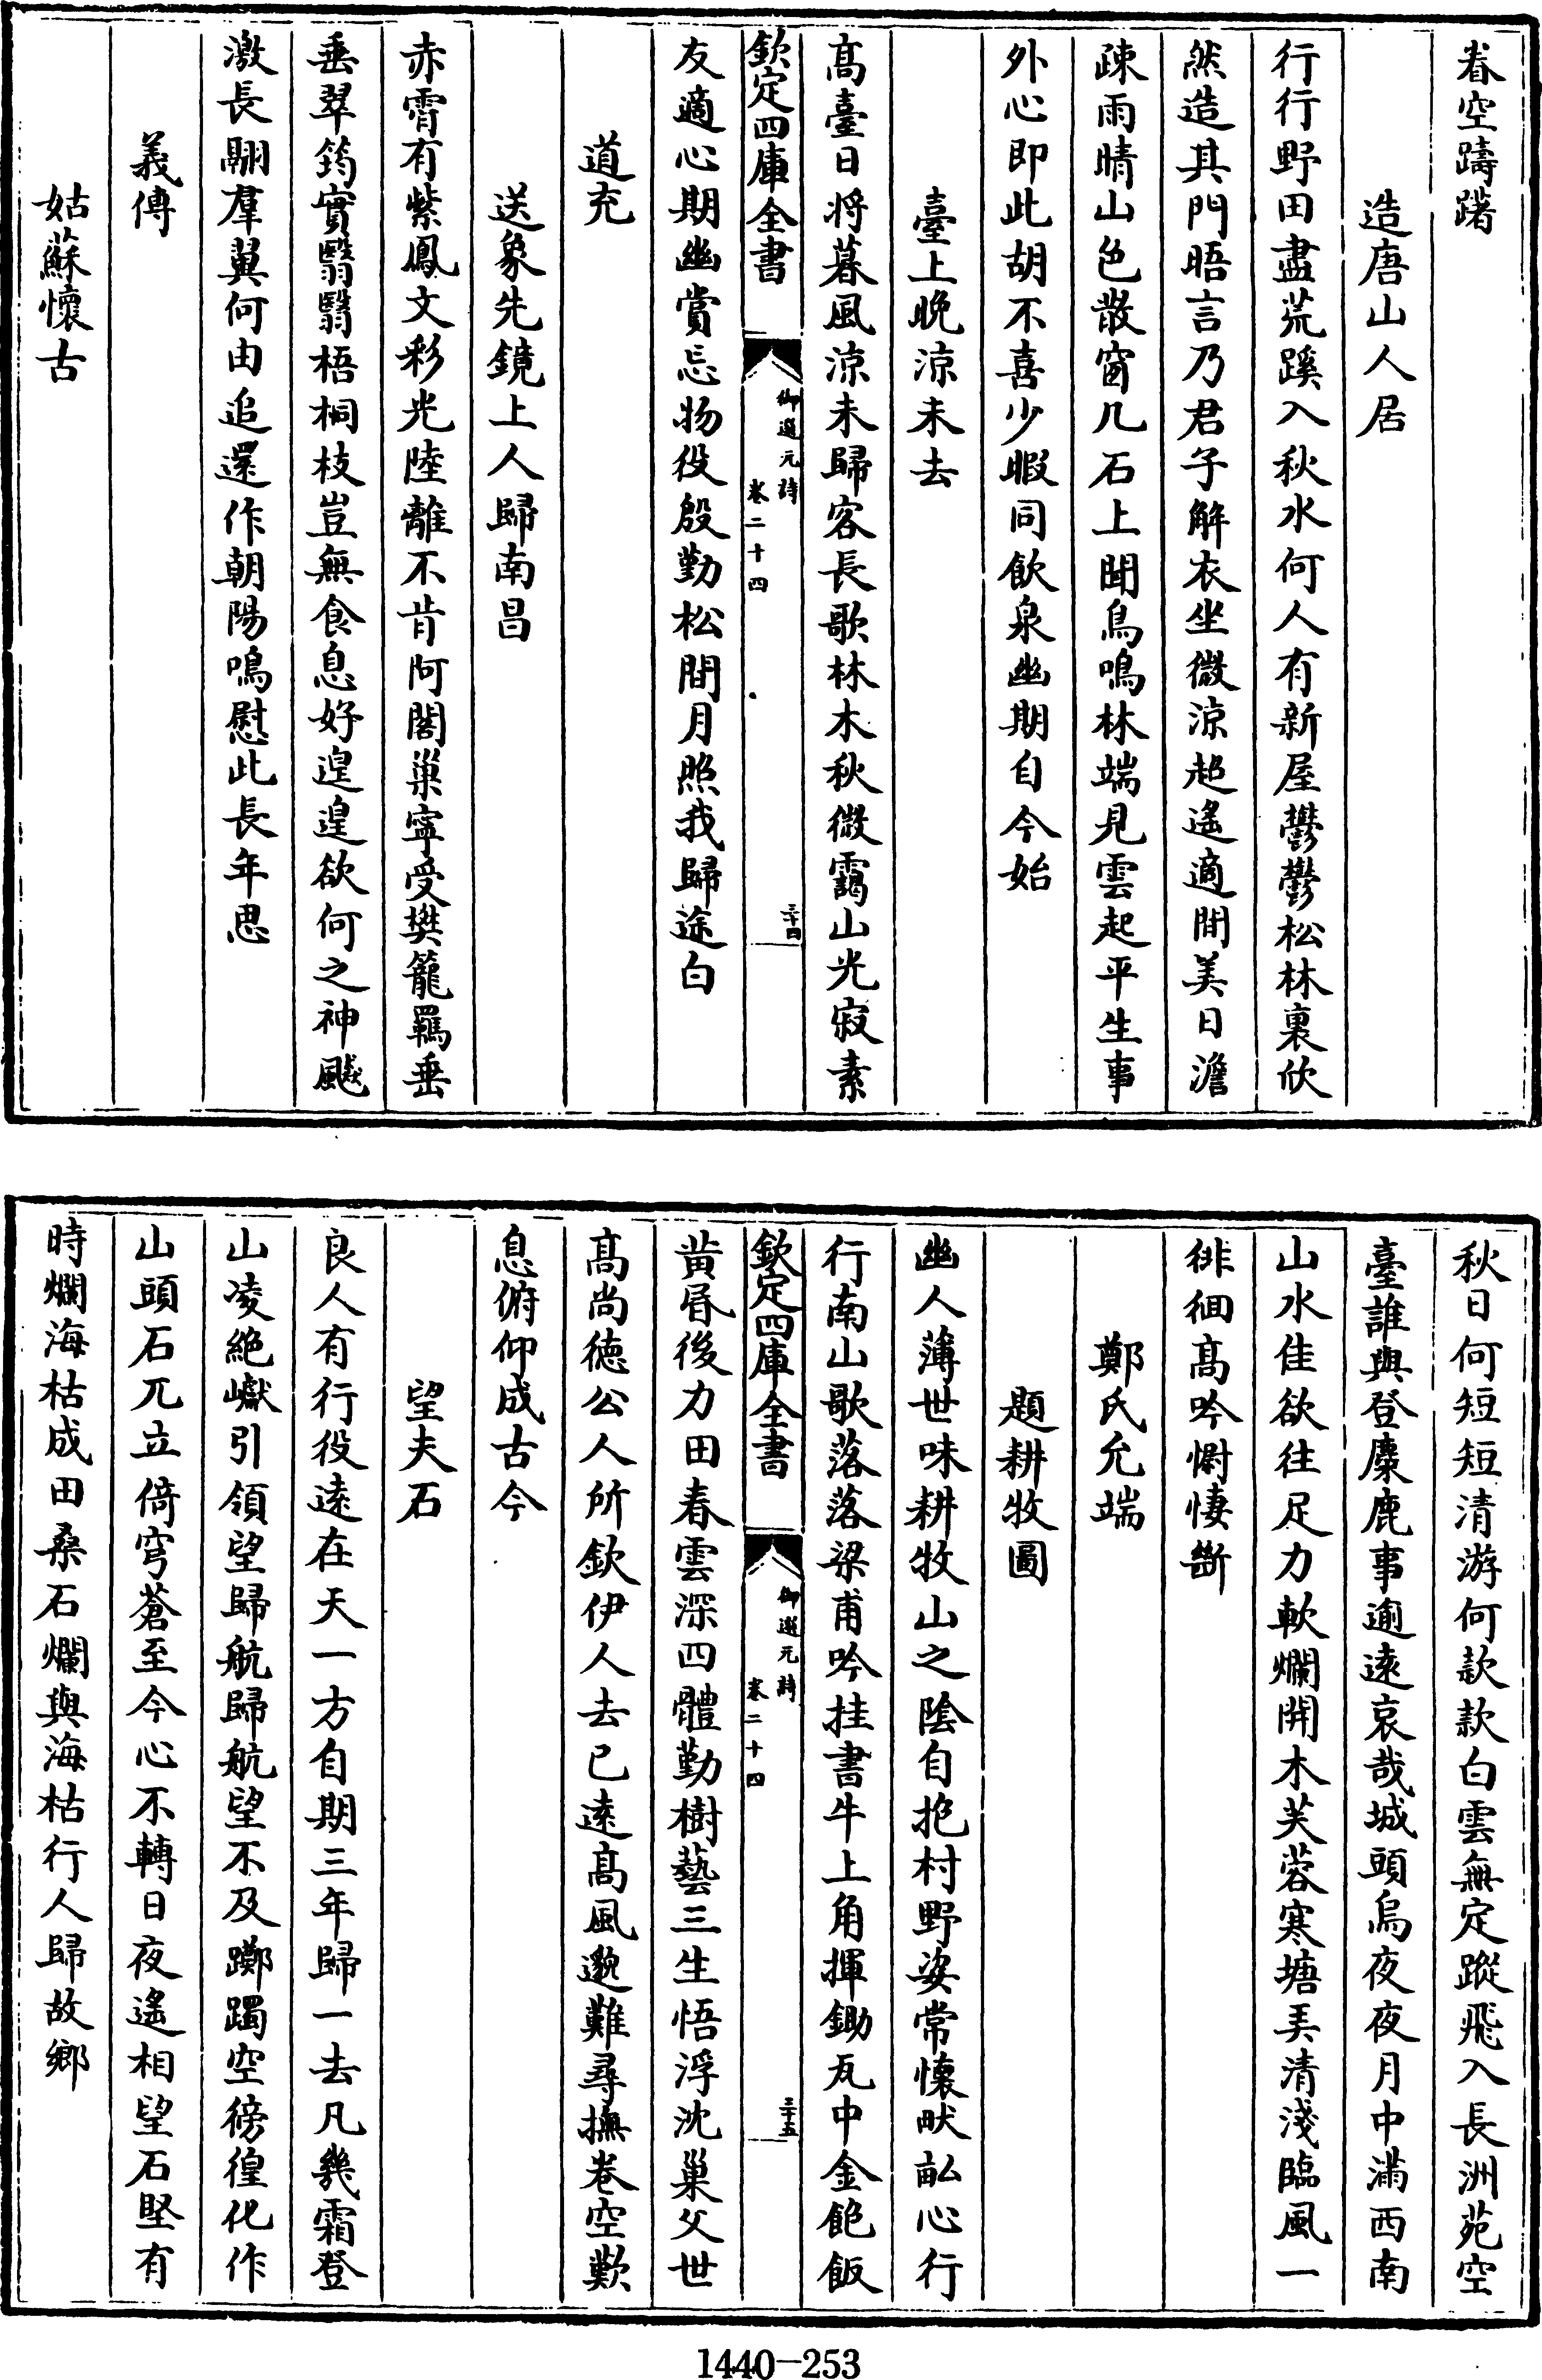 眷空躊躇
造唐山人居
行行野田盡荒蹊入秋水何人有新屋鬱鬱松林裏欣
然造其門晤言乃君子解衣坐微涼超遙適閒美日澹
疎雨晴山色散窗几石上聞鳥鳴林端見雲起平生事
外心即此胡不喜少暇同飲泉幽期自今始
臺上晚涼未去
髙臺日將暮風涼未歸客長歌林木秋微靄山光寂素
欽定四庫全書
御選元詩
卷二十四
三十四
友適心期幽賞忘物役殷勤松間月照我歸途白
道充
送象先鏡上人歸南昌
赤霄有紫鳳文彩光陸離不肯阿閣巢寧受樊籠羈垂
垂翠筠實翳翳梧桐枝豈無食息好遑遑欲何之神飈
激長翮羣翼何由追還作朝陽鳴慰此長年思
義傅
姑蘇懷古
秋日何短短清游何款款白雲無定蹤飛入長洲苑空
臺誰與登麋鹿事逾逺哀哉城頭烏夜夜月中滿西南
山水佳欲往足力軟爛開木芙蓉寒塘弄清淺臨風一
徘徊髙吟欝悽斷
鄭氏允端
題耕牧圖
幽人薄世味耕牧山之陰自抱村野姿常懐畎畝心行
行南山歌落落梁甫吟挂書牛上角揮鋤瓦中金飽飯
欽定四庫全書
御選元詩
卷二十四
三十五
黄昏後力田春雲深四體勤樹藝三生悟浮沈巢父世
髙尚德公人所欽伊人去已逺髙風邈難尋撫卷空歎
息俯仰成古今
望夫石
良人有行役逺在天一方自期三年歸一去凡幾霜登
山凌絶巘引領望歸航歸航望不及躑躅空徬徨化作
山頭石兀立倚穹蒼至今心不轉日夜遙相望石堅有
時爛海枯成田桑石爛與海枯行人歸故鄉
1440-253